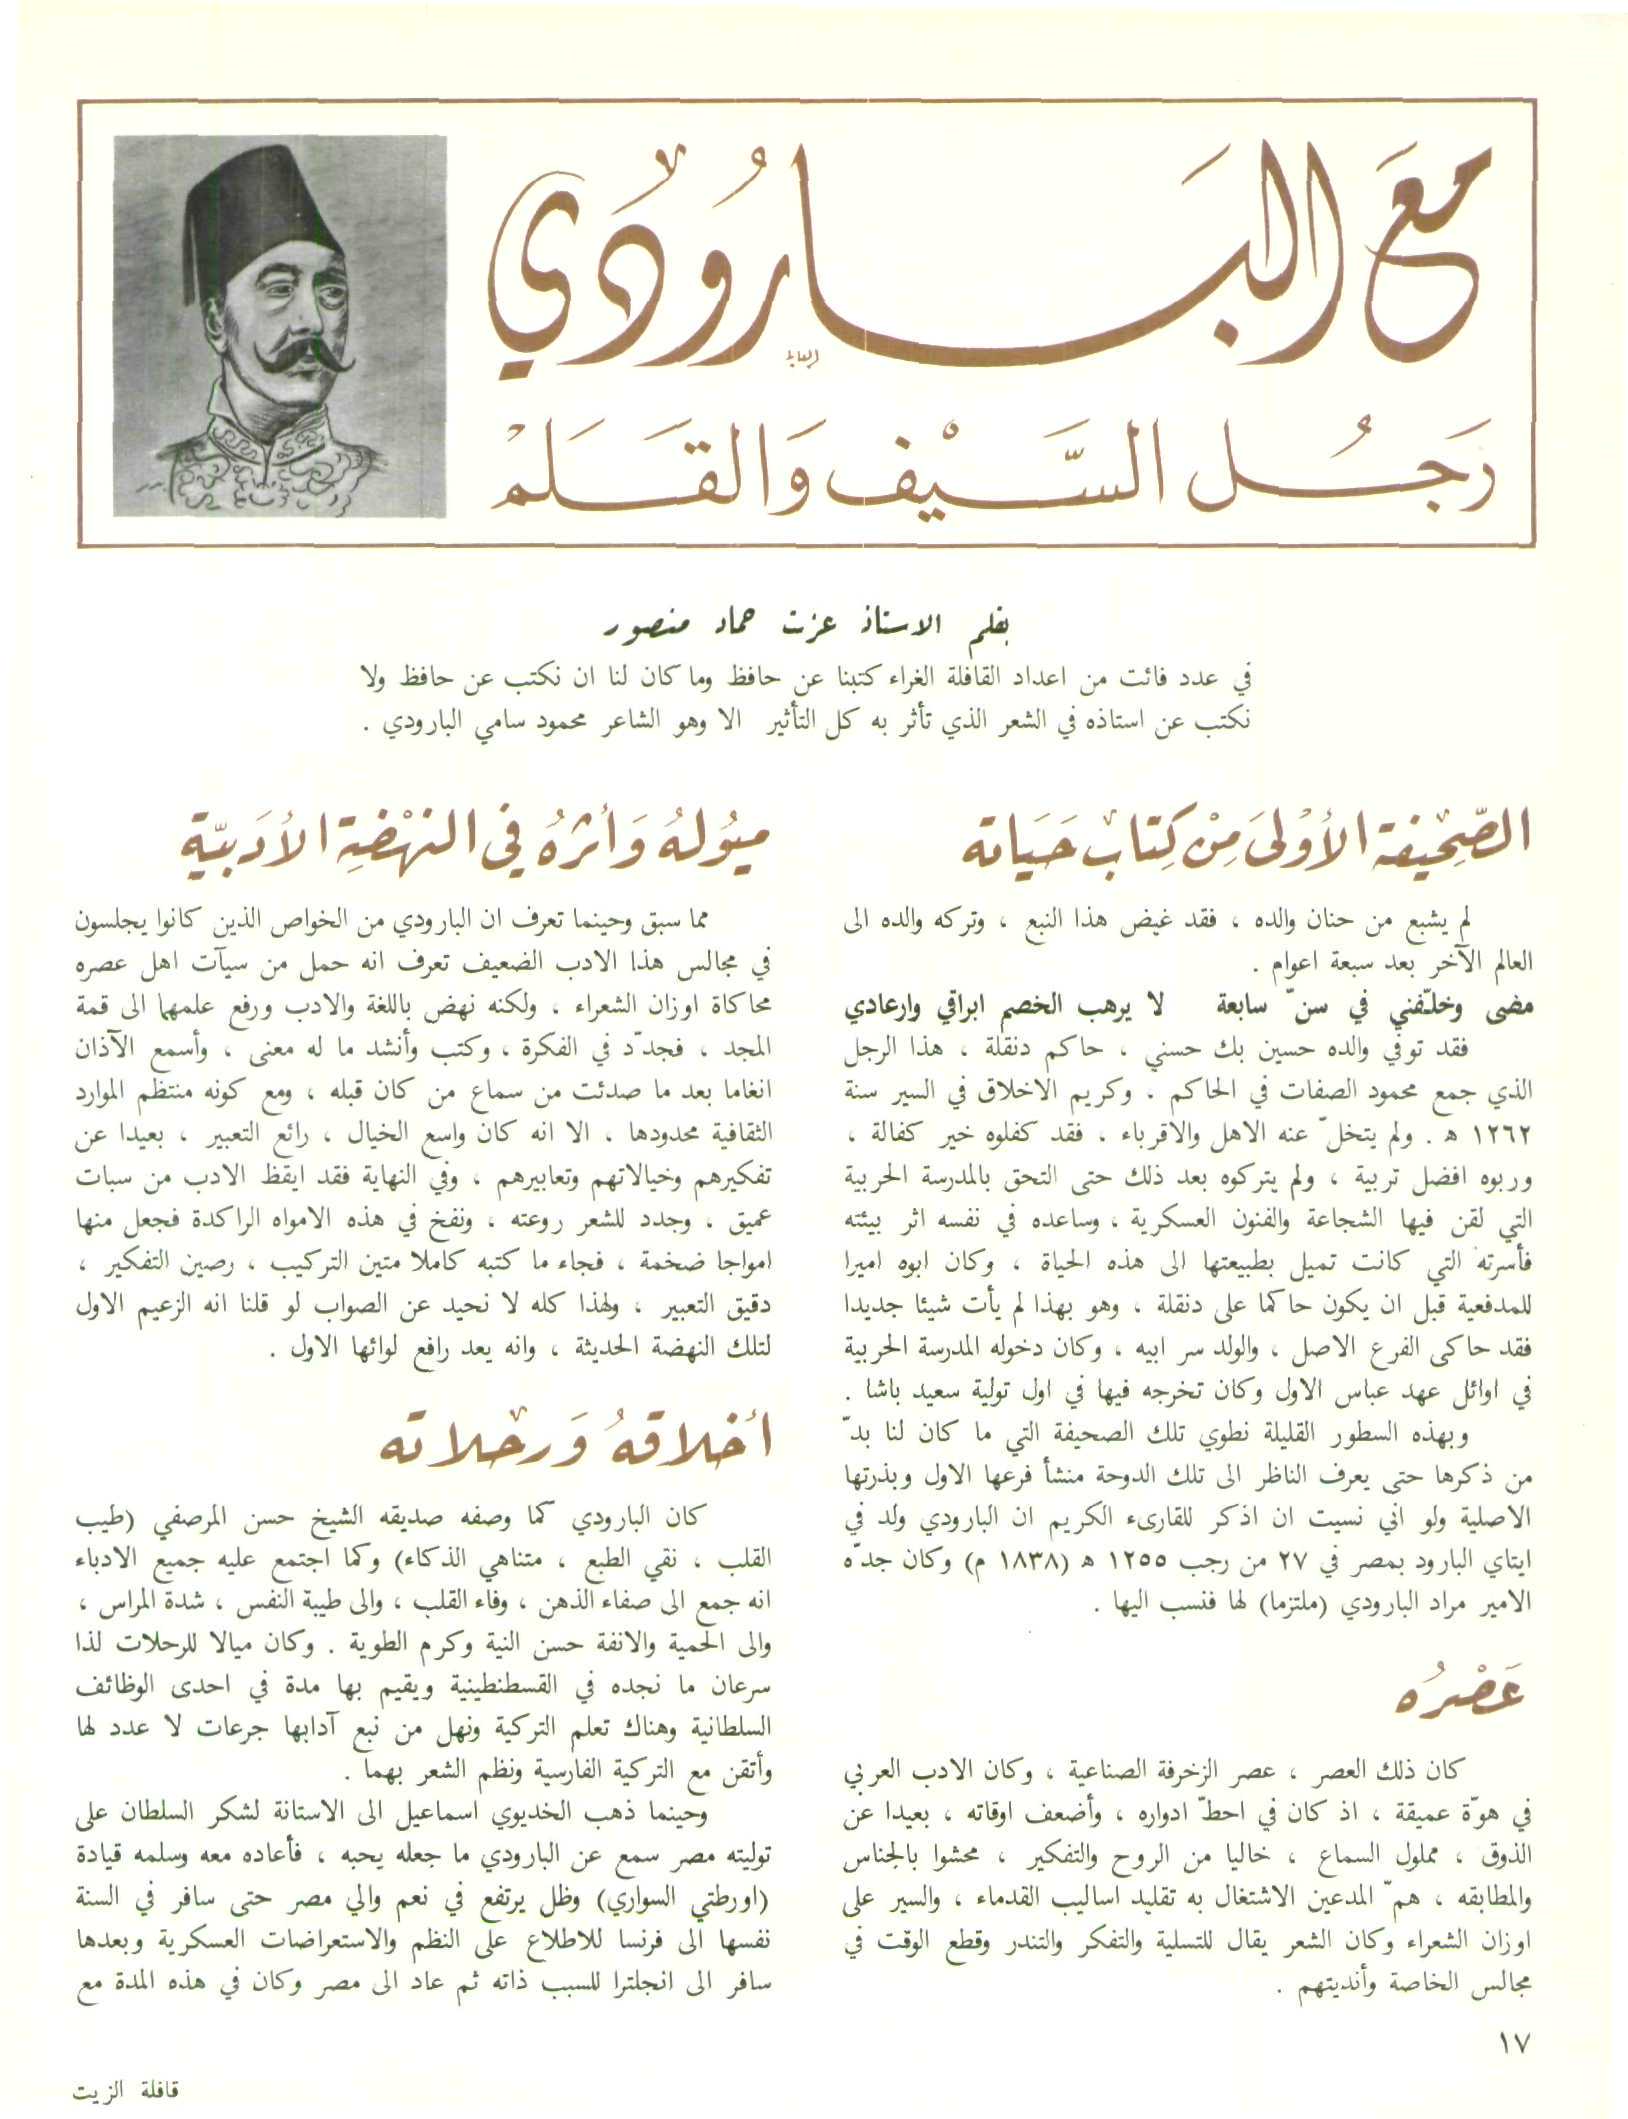 مَعَ البَارُودُي
رَجُل السَّيْف وَالقَلَمْ
بقلم الاستاذ عزت حماد منصور
في عدد فائت من اعداد القافلة الغراء كتبنا عن حافظ وما كان لنا ان نكتب عن حافظ ولا
نكتب عن استاذه في الشعر الذي تأثر به كل التأثير الا وهو الشاعر محمود سامي البارودي .
الصَّحِيفة الأوْلىَ مِنْ كِتاب حَيَاته
لم يشبع من حنان والده ، فقد غيض هذا النبع ، وتركه والده الى
العالم الآخر بعد سبعة اعوام .
مضى وخلّفني في سنّ سابعة لا يرهب الخصم ابراقي وارعادي
فقد توفي والده حسين بك حسني ، حاكم دنقلة ، هذا الرجل
الذي جمع محمود الصفات في الحاكم . وكريم الاخلاق في السير سنة
١٢٦٢ ه . ولم يتخلّ عنه الاهل والاقرباء ، فقد كفلوه خير كفالة ،
وربوه افضل تربية ، ولم يتركوه بعد ذلك حتى التحق بالمدرسة الحربية
التي لقن فيها الشجاعة والفنون العسكرية ، وساعده في نفسه اثر بيئته
فأسرته التي كانت تميل بطبيعتها الى هذه الحياة ، وكان ابوه اميرا
للمدفعية قبل ان يكون حاكما على دنقلة ، وهو بهذا لم يأت شيئا جديدا
فقد حاكى الفرع الاصل ، والولد سر ابيه ، وكان دخوله المدرسة الحربية
في اوائل عهد عباس الاول وكان تخرجه فيها في اول تولية سعيد باشا .
وبهذه السطور القليلة نطوي تلك الصحيفة التي ما كان لنا بدّ
من ذكرها حتى يعرف الناظر الى تلك الدوحة منشأ فرعها الاول وبذرتها
الاصلية ولو اني نسيت ان اذكر للقارىء الكريم ان البارودي ولد في
ايتاي البارود بمصر في ٢٧ من رجب ١٢٥٥ ه (١٨٣٨ م) وكان جدّه
الامير مراد البارودي (ملتزما) لها فنسب اليها .
عَصْرُه
كان ذلك العصر ، عصر الزخرفة الصناعية ، وكان الادب العربي
في هوّة عميقة ، اذ كان في احطّ ادواره ، وأضعف اوقاته ، بعيدا عن
الذوق ، مملول السماع ، خاليا من الروح والتفكير ، محشوا بالجناس
والمطابقه ، همّ المدعين الاشتغال به تقليد اساليب القدماء ، والسير على
اوزان الشعراء وكان الشعر يقال للتسلية والتفكر والتندر وقطع الوقت في
مجالس الخاصة وأنديتهم .
ميُوله وَأثرهُ في النهْضةِ الأدَبيّة
مما سبق وحينما تعرف ان البارودي من الخواص الذين كانوا يجلسون
في مجالس هذا الادب الضعيف تعرف انه حمل من سيآت اهل عصره
محاكاة اوزان الشعراء ، ولكنه نهض باللغة والادب ورفع علمهما الى قمة
المجد ، فجدّد في الفكرة ، وكتب وأنشد ما له معنى ، وأسمع الآذان
انغاما بعد ما صدئت من سماع من كان قبله ، ومع كونه منتظم الموارد
الثقافية محدودها ، الا انه كان واسع الخيال ، رائع التعبير ، بعيدا عن
تفكيرهم وخيالاتهم وتعابيرهم ، وفي النهاية فقد ايقظ الادب من سبات
عميق ، وجدد للشعر روعته ، ونفخ في هذه الامواه الراكدة فجعل منها
امواجا ضخمة ، فجاء ما كتبه كاملا متين التركيب ، رصين التفكير ،
دقيق التعبير ، ولهذا كله لا نحيد عن الصواب لو قلنا انه الزعيم الاول
لتلك النهضة الحديثة ، وانه يعد رافع لوائها الاول .
أخلاقهُ وَرحلاته
كان البارودي كما وصفه صديقه الشيخ حسن المرصفي (طيب
القلب ، نقي الطبع ، متناهي الذكاء) وكما اجتمع عليه جميع الادباء
انه جمع الى صفاء الذهن ، وفاء القلب ، والى طيبة النفس ، شدة المراس ،
والى الحمية والانفة حسن النية وكرم الطوية . وكان ميالا للرحلات لذا
سرعان ما نجده في القسطنطينية ويقيم بها مدة في احدى الوظائف
السلطانية وهناك تعلم التركية ونهل من نبع آدابها جرعات لا عدد لها
وأتقن مع التركية الفارسية ونظم الشعر بهما .
وحينما ذهب الخديوي اسماعيل الى الاستانة لشكر السلطان على
توليته مصر سمع عن البارودي ما جعله يحبه ، فأعاده معه وسلمه قيادة
(اورطتي السواري) وظل يرتفع في نعم والي مصر حتى سافر في السنة
نفسها الى فرنسا للاطلاع على النظم والاستعراضات العسكرية وبعدها
سافر الى انجلترا للسبب ذاته ثم عاد الى مصر وكان في هذه المدة مع
١٧
قافلة الزيت